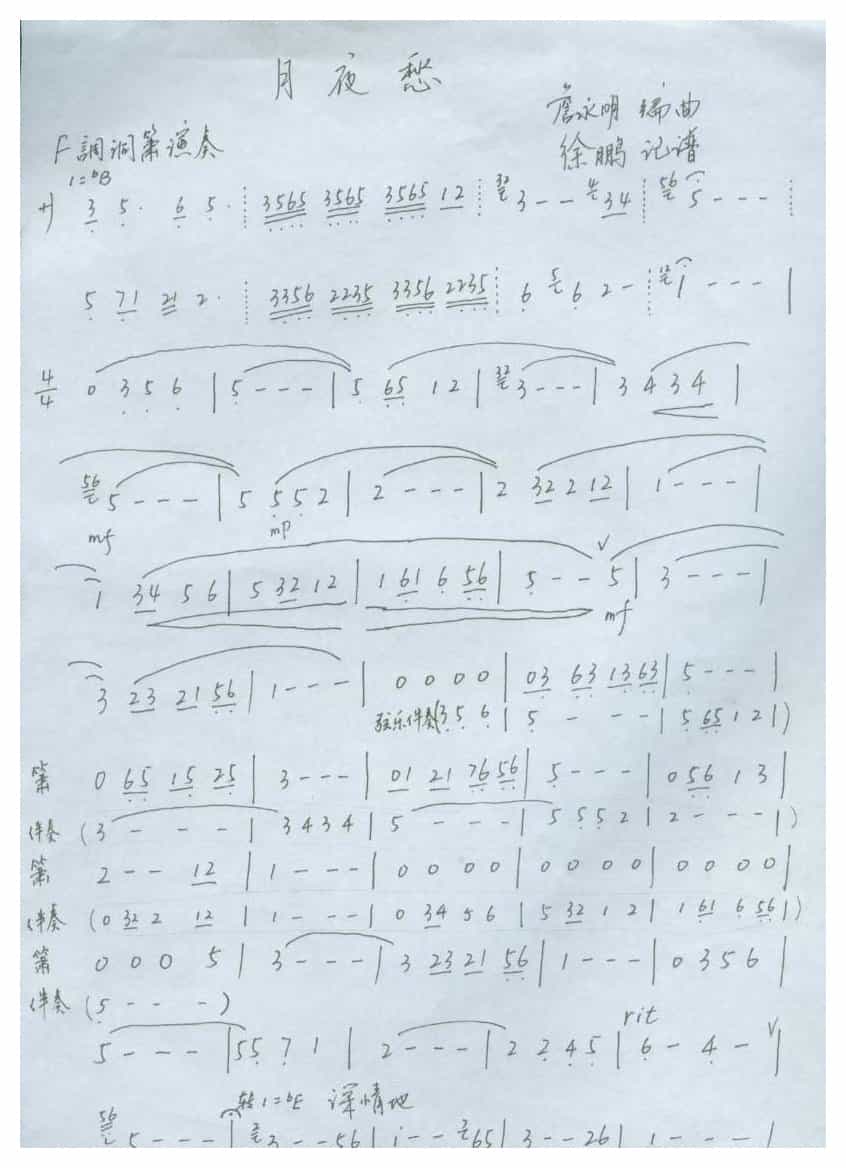 月夜愁
詹永明 编曲
F調洞箫演奏
徐鹏 记谱
1=♭B
サ 3 5 · 6 5 · 3565 3565 3565 12 3 - - 34 5 - - -
5 71 21 2 · 3356 2235 3356 2235 6 6 2 - 1 - - - |
4/4 0 3 5 6 | 5 - - - | 5 65 1 2 | 3 - - - | 3 4 3 4 |
56 5 - - - | 5 5 5 2 | 2 - - - | 2 32 2 12 | 1 - - - |
mf mp
1 34 5 6 | 5 32 12 | 1 61 6 56 | 5 - - 5 | 3 - - - |
mf
3 23 21 56 | 1 - - - | 0 0 0 0 | 03 63 13 63 | 5 - - - |
弦乐伴奏(3 5 6 | 5 - - - | 5 65 1 2 | )
箫 0 65 15 25 | 3 - - - | 01 21 76 56 | 5 - - - | 0 56 1 3 |
伴奏 (3 - - - | 3 4 3 4 | 5 - - - | 5 5 5 2 | 2 - - - | )
箫 2 - - 12 | 1 - - - | 0 0 0 0 | 0 0 0 0 | 0 0 0 0 |
伴奏 (0 32 2 12 | 1 - - - | 0 34 5 6 | 5 32 1 2 | 1 61 6 56 | )
箫 0 0 0 5 | 3 - - - | 3 23 21 56 | 1 - - - | 0 3 5 6 |
伴奏 (5 - - - )
rit
5 - - - | 55 7 1 | 2 - - - | 2 2 4 5 | 6 - 4 - |
转1=♭E 深情地
56 5 - - - | 3 - - 56 | 1 - - 65 | 3 - - 26 | 1 - - - |